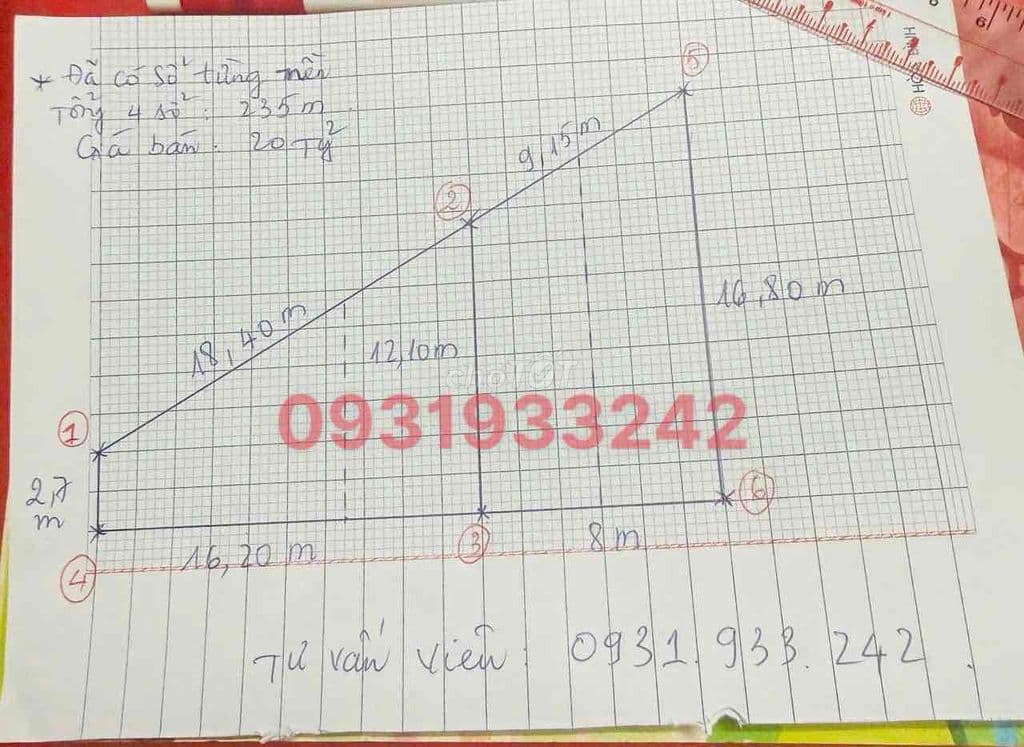 * Đã có sổ từng nền
Tổng 4 sổ: 235m
Giá bán: 20 Tỷ
5
9,15m
2
18,40m
16,80m
12,10m
chợTỐT
0931933242
1
2,7
m
6
8m
3
16,20m
4
Tư vấn viên: 0931.933.242.